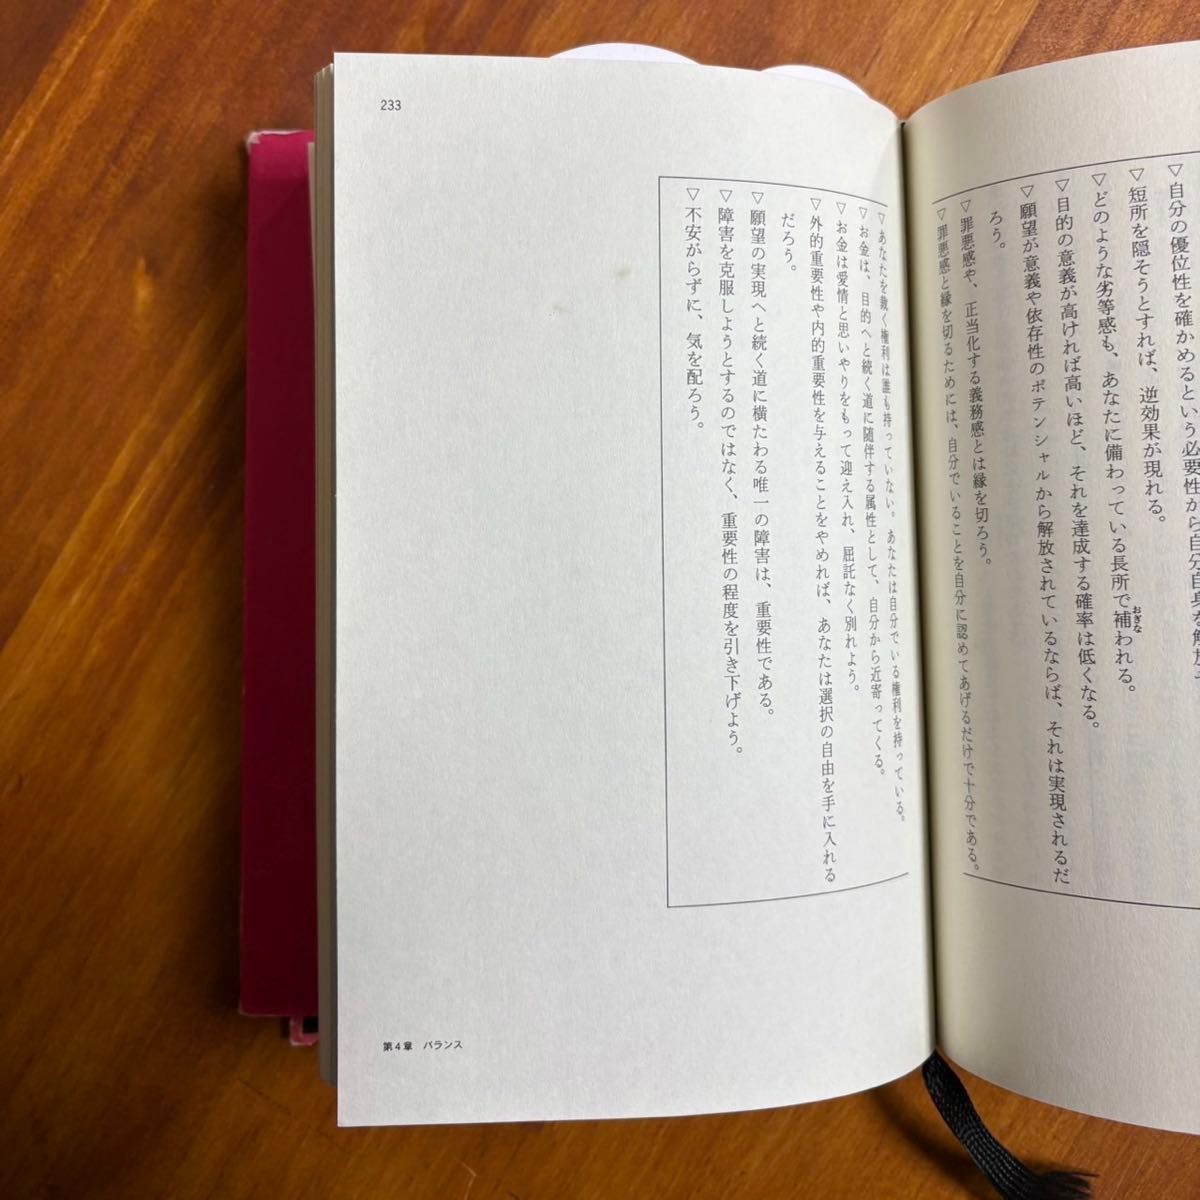 ▽自分の優位性を確かめるという必要性から自分自身を解放
▽短所を隠そうとすれば、逆効果が現れる。
▽どのような劣等感も、あなたに備わっている長所で補われる。
おぎな
▽目的の意義が高ければ高いほど、それを達成する確率は低くなる。
▽願望が意義や依存性のポテンシャルから解放されているならば、それは実現されるだ
ろう。
▽罪悪感や、正当化する義務感とは縁を切ろう。
▽罪悪感と縁を切るためには、自分でいることを自分に認めてあげるだけで十分である。
233
▽あなたを裁く権利は誰も持っていない。あなたは自分でいる権利を持っている。
▽お金は、目的へと続く道に随伴する属性として、自分から近寄ってくる。
▽お金は愛情と思いやりをもって迎え入れ、屈託なく別れよう。
▽外的重要性や内的重要性を与えることをやめれば、あなたは選択の自由を手に入れる
だろう。
▽願望の実現へと続く道に横たわる唯一の障害は、重要性である。
▽障害を克服しようとするのではなく、重要性の程度を引き下げよう。
▽不安がらずに、気を配ろう。
第4章 バランス